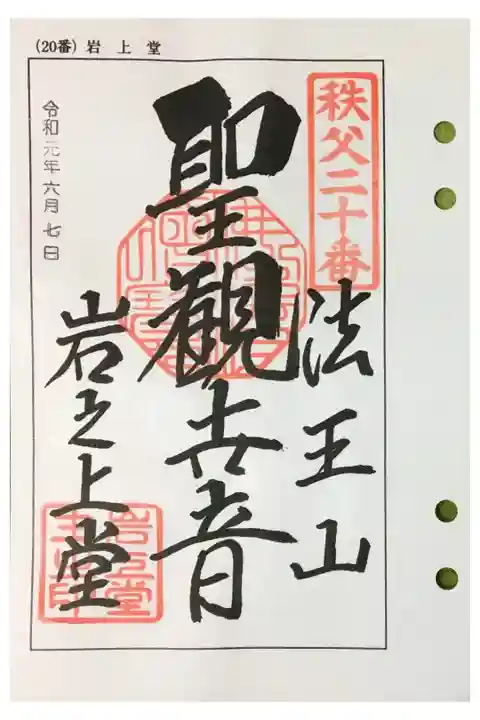 （20番）岩上堂
秩父二十番
法王山
聖観世音
岩之上堂
令和元年六月七日